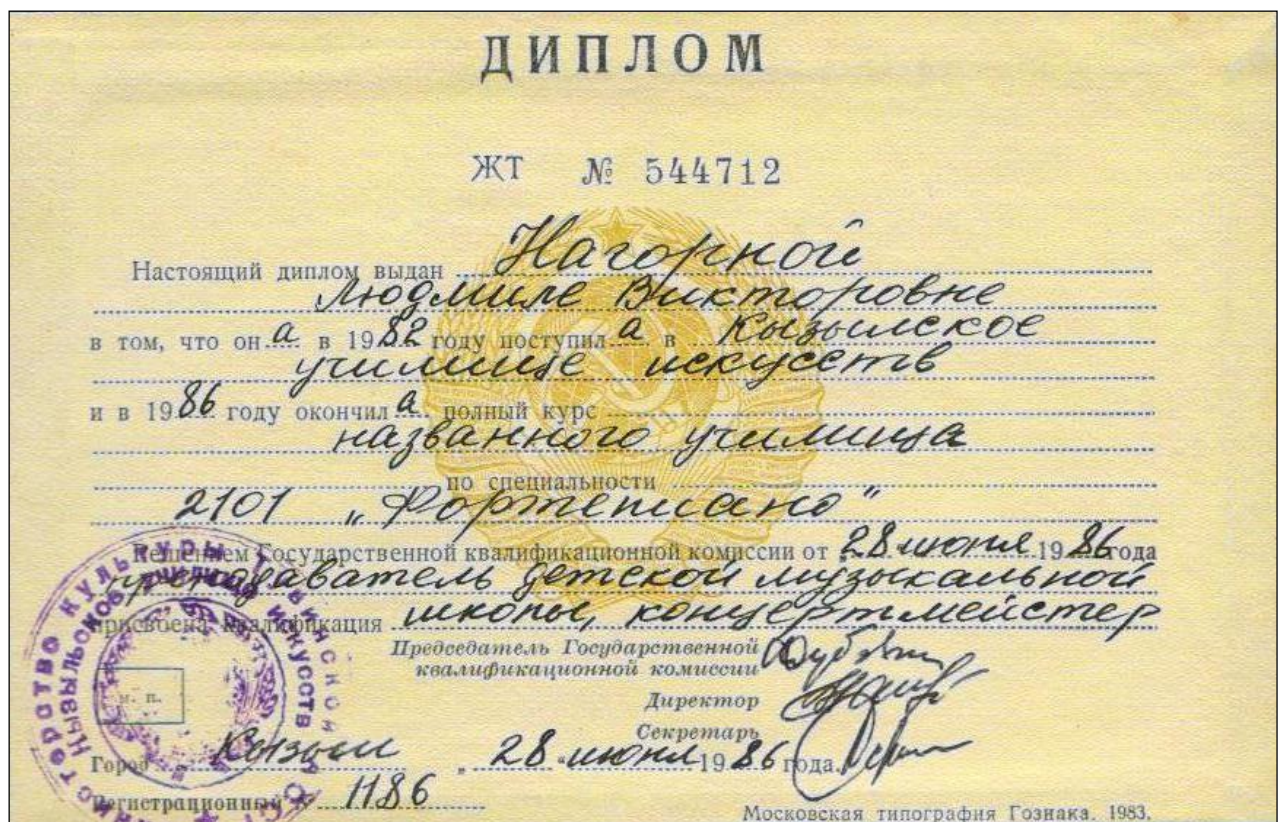 ДИПЛОМ
ЖТ № 544712
Настоящий диплом выдан Нагорной
Людмиле Викторовне
в том, что он а в 1982 году поступил а в Кызылское
училище искусств
и в 1986 году окончил а полный курс
названного училища
по специальности
2101 „Фортепиано"
Решением Государственной квалификационной комиссии от 28 июня 1986 года
преподаватель детской музыкальной
присвоена квалификация школы, концертмейстер
Председатель Государственной
квалификационной комиссии
Директор
Секретарь
м. п.
Город Кызыл „28" июня 1986 года.
Регистрационный № 1186
Московская типография Гознака. 1983.